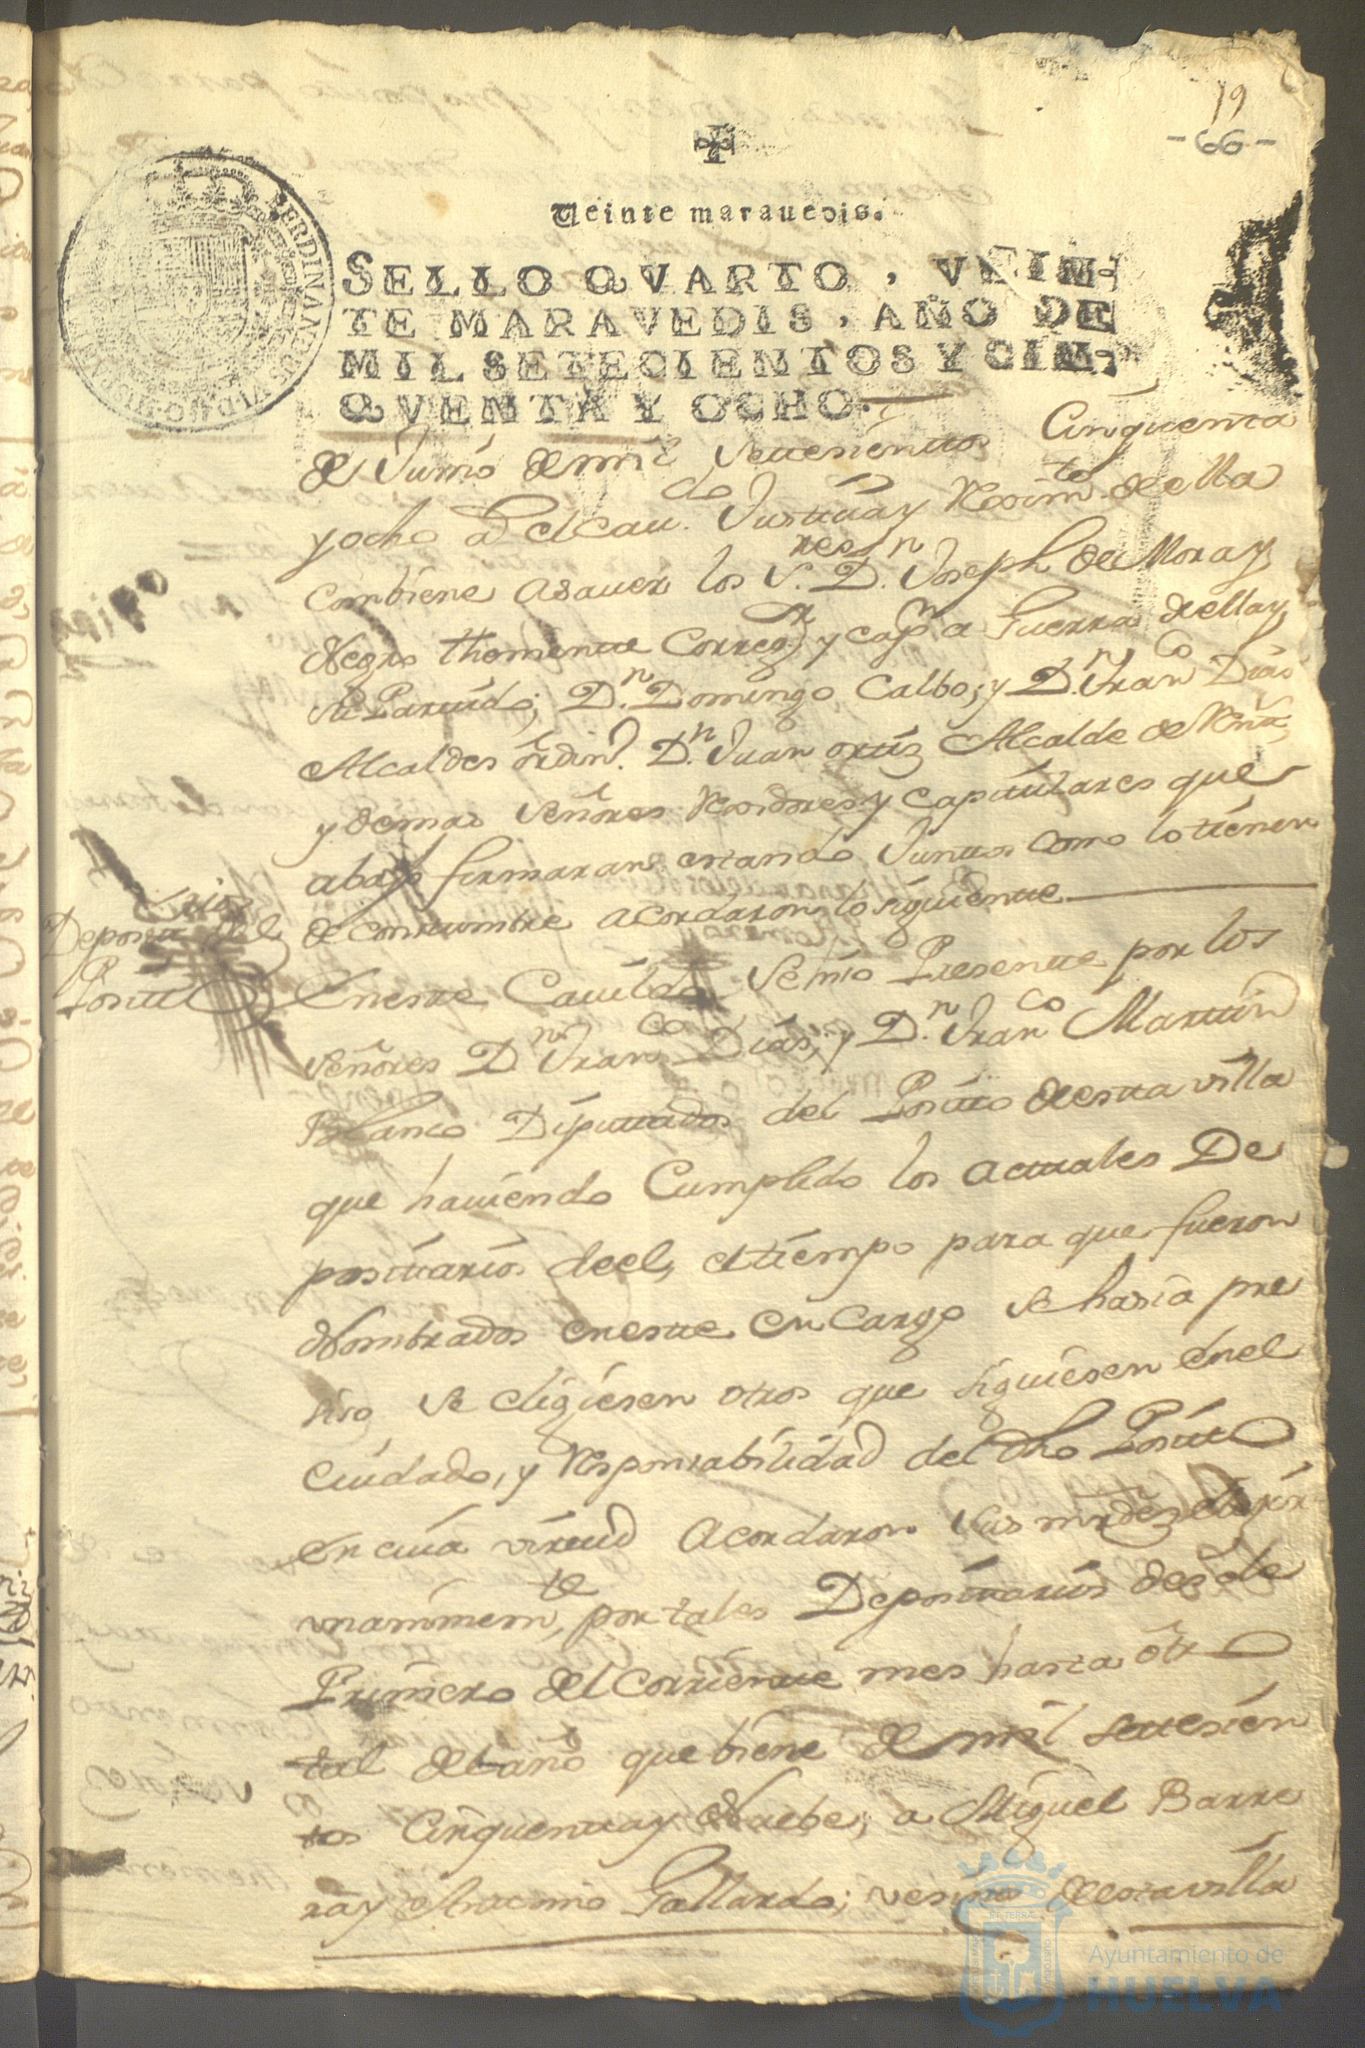 19
-66-
Veinte marauedis.
SELLO QVARTO, VEIN-
TE MARAVEDIS, AÑO DE
MIL SETECIENTOS Y CIN-
QVENTA Y OCHO.
FERDINANDUS VI D G HISPANIAR
de Junio de mil Settesienttos Cinquenta
y ocho el Cau.do Justtiia y Reximto. de ella
combiene asauer los S.res D.n Joseph de Mora y
Negro theniente Correg.r y cap.n a Guerra de ella y
su Parttido; D.n Domingo Calbo, y D.n Fran.co Dias
Alcaldes ordin.s D.n Juan ortiz Alcalde de
y demas Señores Rexidores y capittulares que
abajo firmaran estando Junttos como lo tienen
de consttumbre acordaron lo siguientte
Deposittarios del
Positto
En estte Cauildo se hiso Presentte por los
Señores D.n Fran.co Dias, y D.n Fran.co Marttin
Blanco Diputtados del Positto de estta villa
que hauiendo Cumplido los acttuales De
posittarios de el, el tiempo para que fueron
Nombrados en estte en Cargo se hasia pre
siso se eligiesen otros que siguiesen en el
Cuidado, y Responsabilidad del dho Positto
en cuia virttud Acordaron sus mrdes elexir
unanimem.te, por tales Deposittarios desde
Primero del Corrientte mes hasta otro
tal del año que biene de mil settesien
tos Cinquentta y Nuebe, a Miguel Barre
ra y Anttonio Gallardo; vesinos de estta villa
Ayuntamiento de
HUELVA